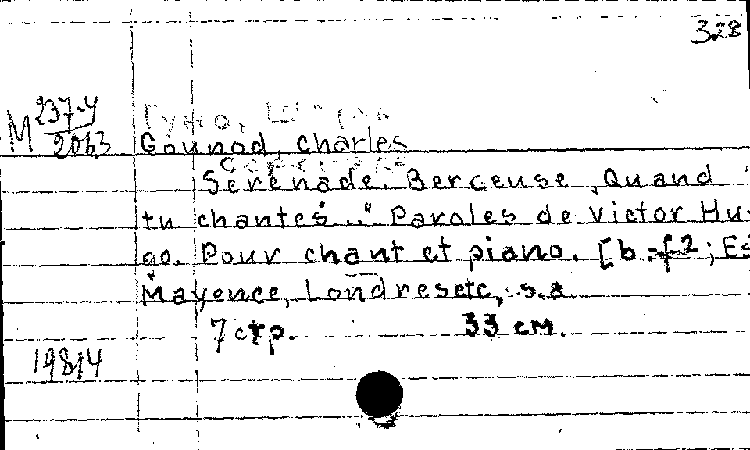 328
M 237-4
2063
Гуно,
Gounod, Charles
Serenade. Berceuse „Quand
tu chantes..." Paroles de Victor Hu-
go. Pour chant et piano. [b-f2; Es
Mayence, Londres etc, s.a.
7 стр. 33 см.
19814